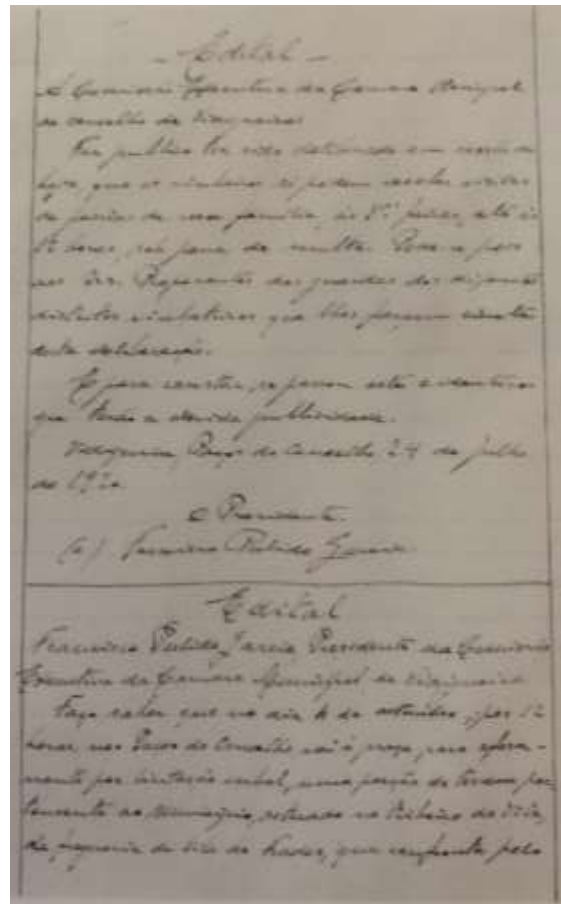 - Edital -
A Comissão Executiva da Camara Municipal
do concelho da Vidigueira:
Faz publico ter sido deliberado em sessão de
hoje, que os só podem receber visitas
de pessoas de sua familia, ás feiras, até ás
12 horas, sob pena de multa. Pede-se pois
aos Srs. dos guardas dos
districtos que lhes façam
esta deliberação.
E para constar, se passou este e identicos
que terão a devida publicidade.
Vidigueira, Paços do Concelho, 24 de julho
de 1920
O Presidente
(a) Francisco Pulido Garcia
Edital
Francisco Pulido Garcia, Presidente da Comissão
Executiva da Camara Municipal da Vidigueira
Faço saber que no dia de outubro, por 12
horas, nos Paços do Concelho vai á praça, para afora-
mento por licitação verbal, uma porção de terreno per-
tencente ao Municipio, situado no da Vila,
da freguesia de Vila de Frades, que confronta pelo